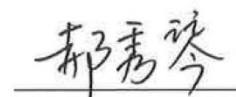 郝秀琴